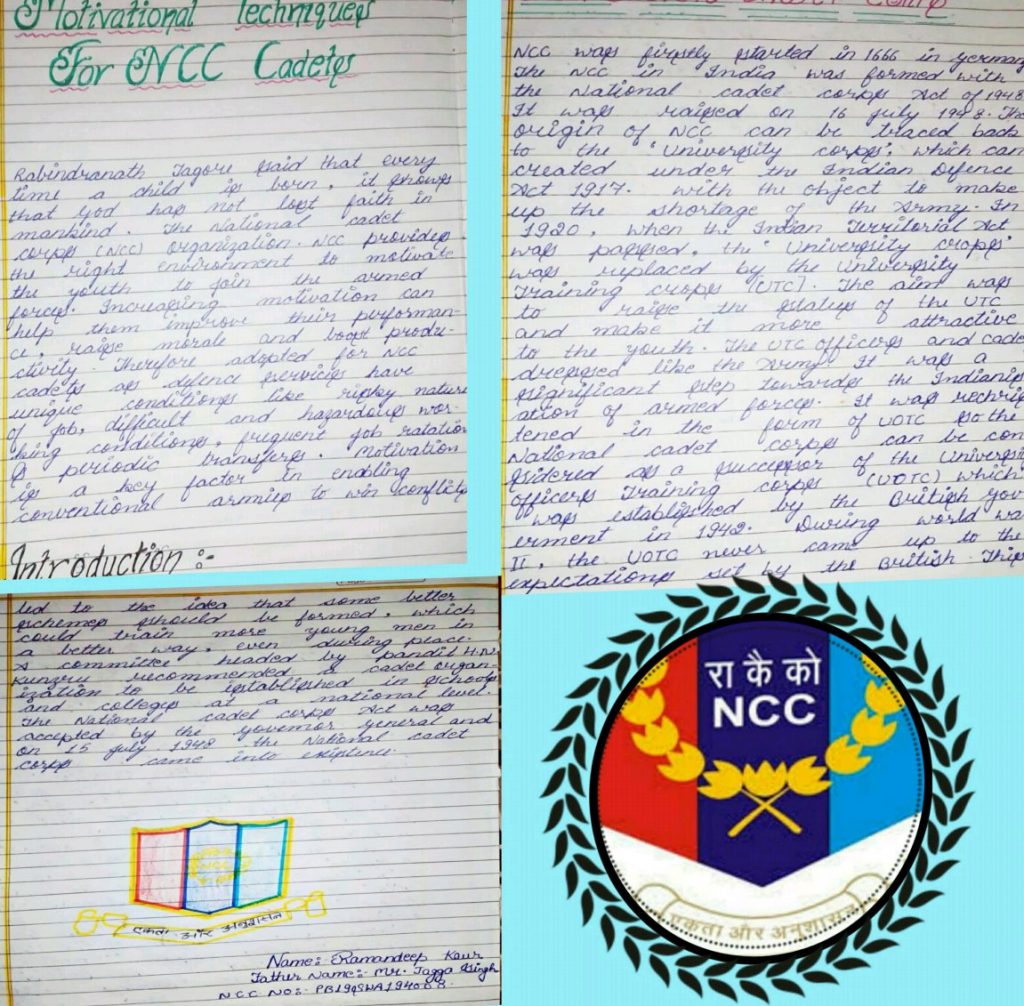 Motivational Techniques
For NCC Cadets
Rabindranath Tagore said that every
time a child is born, it shows
that God has not lost faith in
mankind. The National cadet
corps (NCC) organization. NCC provides
the right environment to motivate
the youth to join the armed
forces. Increasing motivation can
help them improve their performan-
ce, raise morale and boost produ-
ctivity. Therefore adopted for NCC
cadets as defence services have
unique conditions like risky nature
of job, difficult and hazardous wor-
king conditions, frequent job ratation
& periodic transfers. Motivation
is a key factor in enabling
conventional armies to win conflicts
Introduction :-
NCC was firstly started in 1666 in germany
The NCC in India was formed with
the National cadet corps Act of 1948
It was raised on 16 july 1948. The
origin of NCC can be traced back
to the 'University corps', which can
created under the Indian Defence
Act 1917. with the object to make
up the shortage of the Army. In
1920, when the Indian Territorial Act
was passed, the 'University crops'
was replaced by the University
Training crops (UTC). The aim was
to raise the status of the UTC
and make it more attractive
to the youth. The UTC officers and cade
dressed like the Army. It was a
significant step towards the Indianis
ation of armed forces. It was rechris
tened in the form of UOTC so the
National cadet corps can be con
sidered as a successor of the Universit
officers Training corps (UOTC) which
was established by the British gov
erment in 1942. During world wa
II, the UOTC never came up to the
expectations set by the British. This
led to the idea that some better
schemes should be formed, which
could train more young men in
a better way, even during peace.
A committee headed by pandit H.N.
kunzru recommended a cadet organ-
ization to be established in schools
and colleges at a national level.
The National cadet corps Act was
accepted by the governor general and
on 15 july 1948 the National cadet
corps came into existence.
एकता और अनुशासन
Name:- Ramandeep Kaur
Father Name:- Mr. Jagga Singh
NCC NO:-
रा कै को
NCC
एकता और अनुशासन